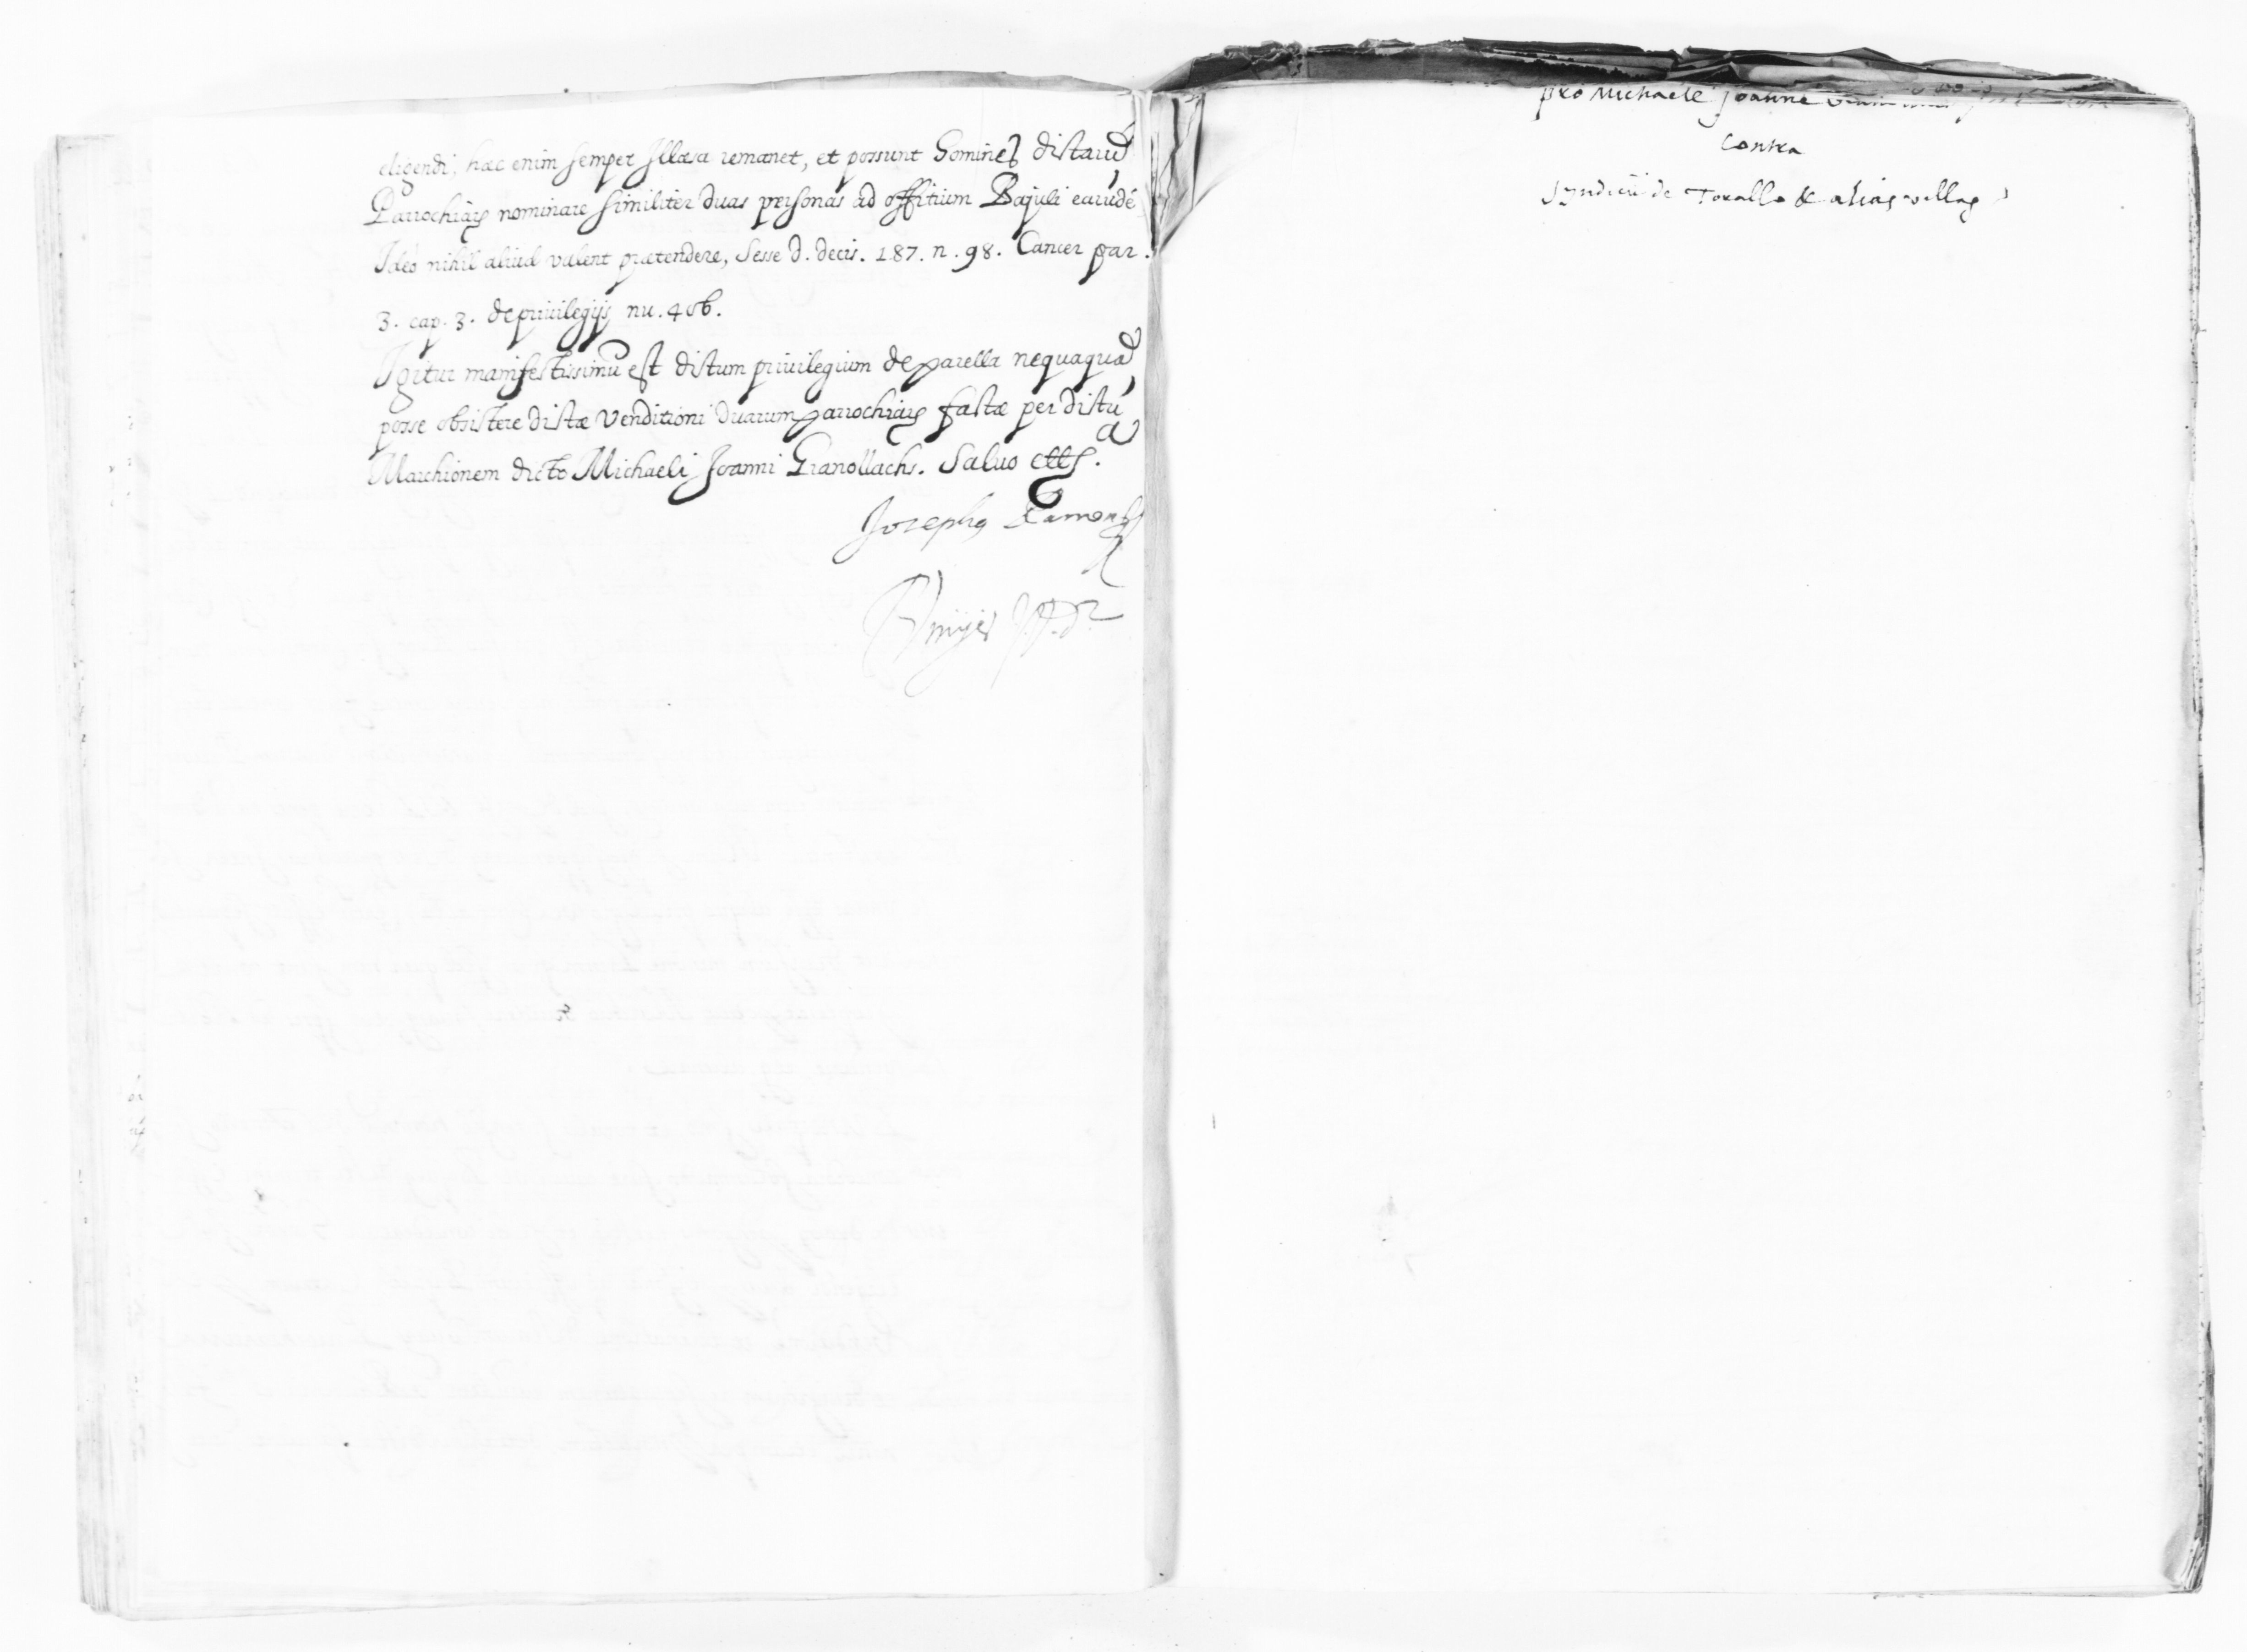 eligendi, hæc enim semper Illæsa remanet, et possunt homines dictarũ
Parrochiarũ nominare similiter duas personas ad offitium Bajuli earudẽ
Ideò nihil aliud valent prætendere, Sesse d. decis. 187. n. 98. Cancer par.
3. cap. 3. de priuilegijs nu. 406.
Igitur manifestissimũ est dictum priuilegium de parella nequaquã
posse obsistere dictæ venditioni duarum parrochiarũ factæ per dictũ
Marchionem dicto Michaeli Joanni Granollachs. Saluo
Josephus Ramon
pro Michaele Joanne
Contra
Syndicũ de Torallo & alias villas